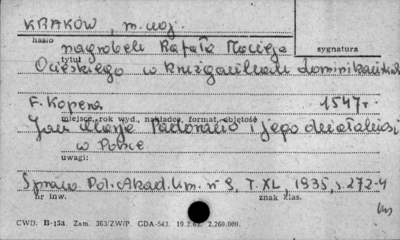 KRAKÓW, m. woj.
hasło
nagrobek Rafała Macieja
sygnatura
tytuł
Ocieskiego w krużgankach dominikańsk.
F. Kopera 1547 r.
miejsce, rok wyd., nakładca, format, objętość
Jan Maria Padovano i jego działalność
w Polsce
uwagi:
Spraw. Pol. Akad. Um. nr 9, T. XL, 1935, s. 272-4
nr inw.
znak klas.
CWD. B-15a. Zam. 363/ZW/P. GDA-543. 19.2.62. 2.260.000.